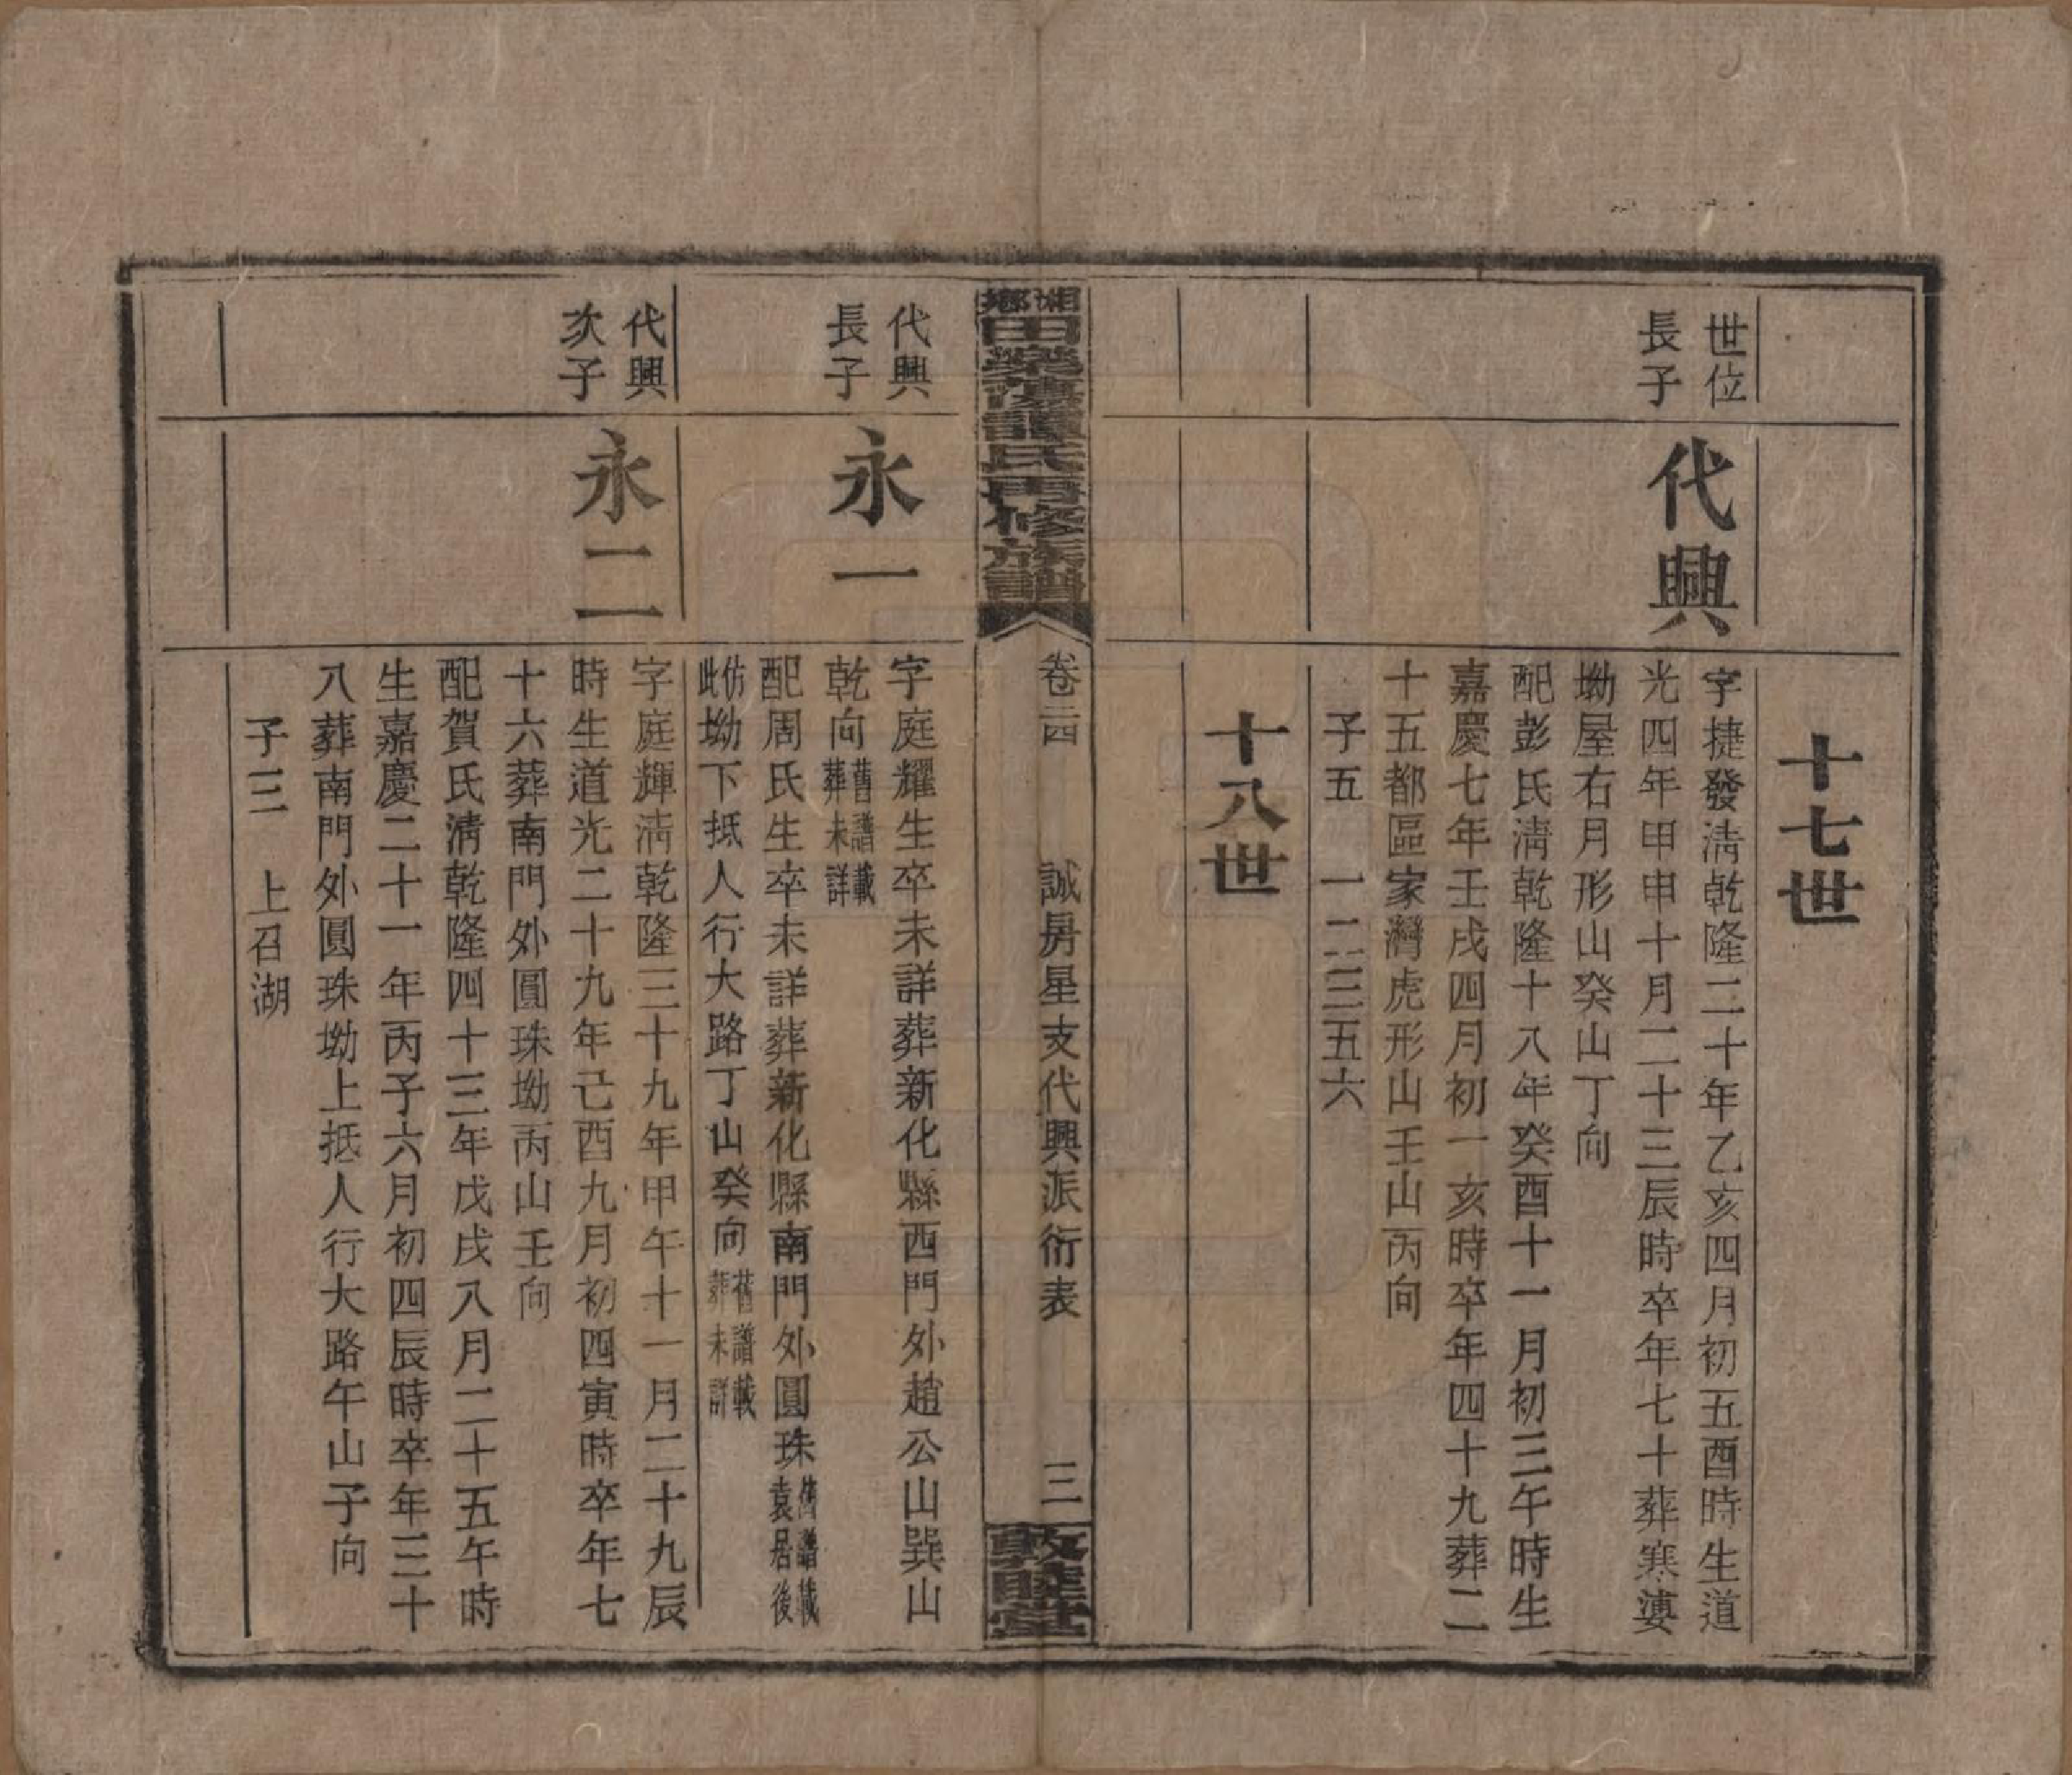 十七世
世位
長子
代興
字捷發淸乾隆二十年乙亥四月初五酉時生道
光四年甲申十月二十三辰時卒年七十葬寒婆
坳屋右月形山癸山丁向
配彭氏淸乾隆十八年癸酉十一月初三午時生
嘉慶七年壬戌四月初一亥時卒年四十九葬二
十五都區家灣虎形山壬山丙向
子五 一二三五六
十八世
湘鄉田樂傅譚氏再修族譜
卷二四 誠房星支代興派衍表 三
敦睦堂
代興
長子
永一
字庭耀生卒未詳葬新化縣西門外趙公山巽山
乾向舊譜載葬未詳
配周氏生卒未詳葬新化縣南門外圓珠舊譜載袁居後
仿此坳下抵人行大路丁山癸向舊譜載葬未詳
代興
次子
永二
字庭輝淸乾隆三十九年甲午十一月二十九辰
時生道光二十九年己酉九月初四寅時卒年七
十六葬南門外圓珠坳丙山壬向
配賀氏淸乾隆四十三年戊戌八月二十五午時
生嘉慶二十一年丙子六月初四辰時卒年三十
八葬南門外圓珠坳上抵人行大路午山子向
子三 上召湖